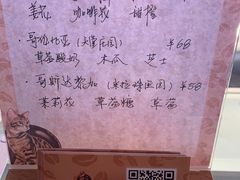 姜花 咖啡花 甜橙
·哥伦比亚（天堂庄园） ¥68
草莓酸奶 木瓜 芝士
·哥斯达黎加（米拉蝶庄园） ¥58
茉莉花 草莓糖 草莓